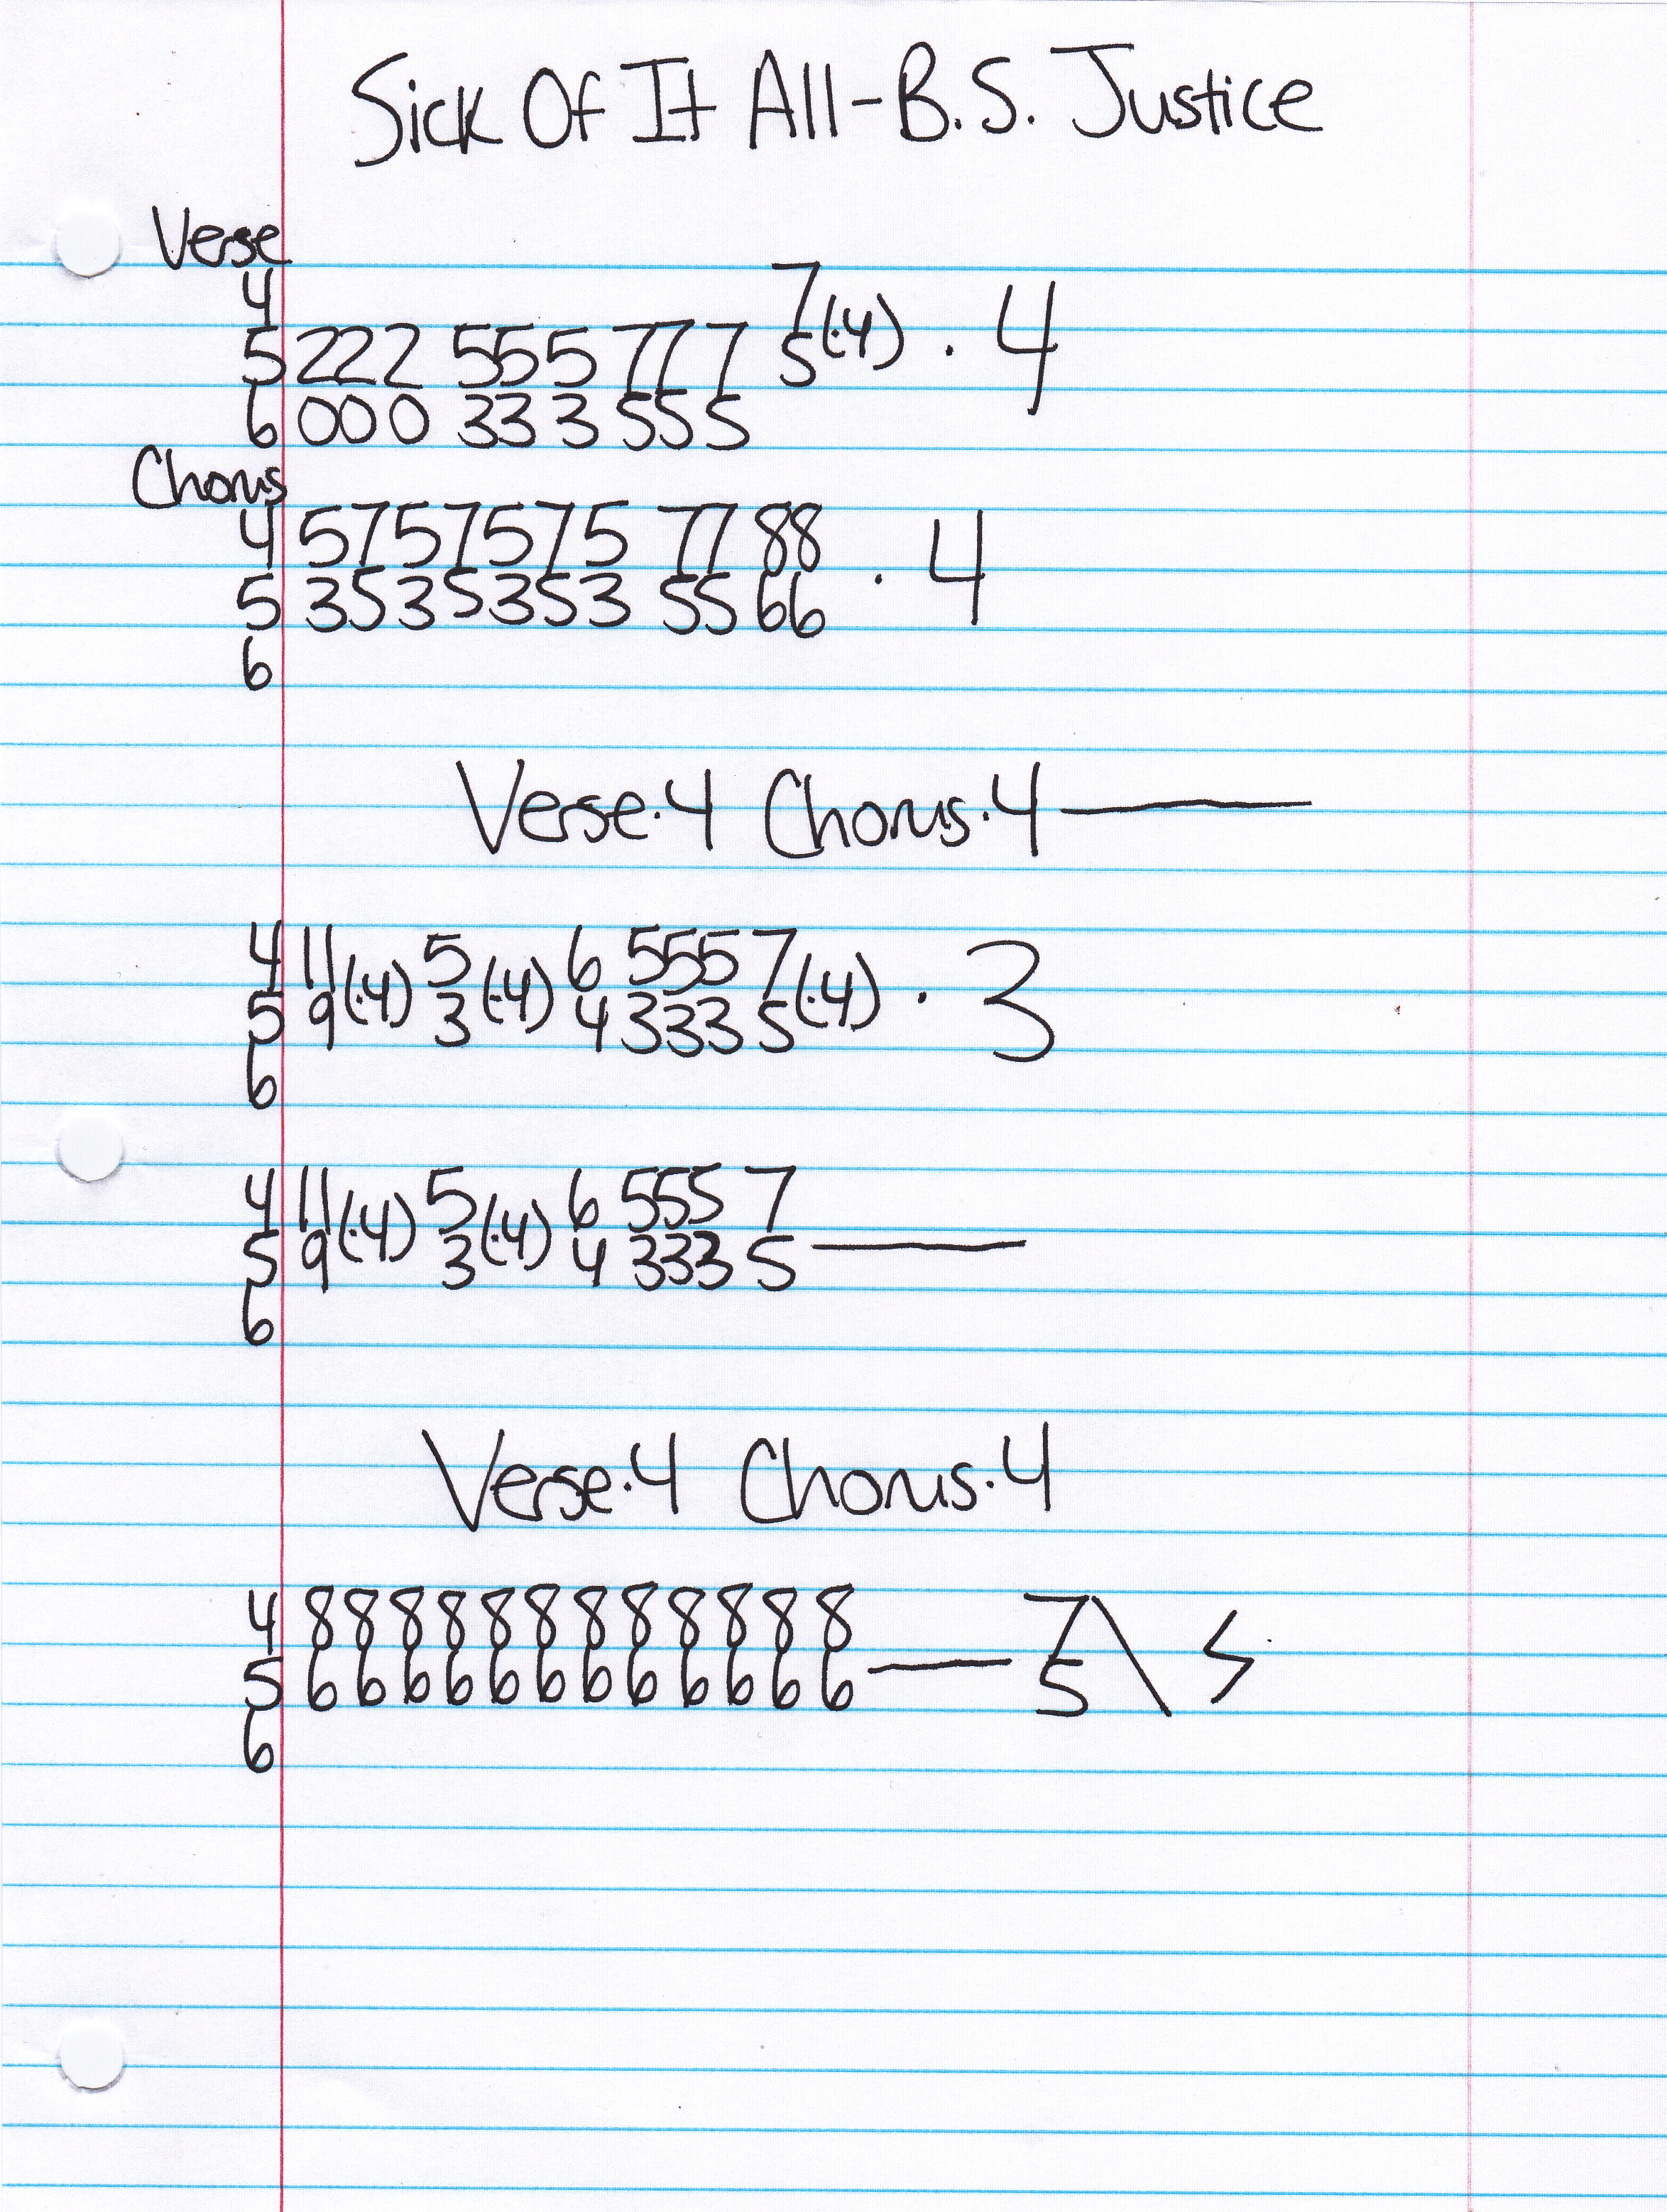 Sick Of It All-B.S. Justice
Verse
4 7(·4) · 4
5 222 555 777 5
6 000 333 555
Chorus
4 5757575 77 88 · 4
5 3535353 55 66
6
Verse·4 Chorus·4 —
4 11(·4) 5(·4) 6 555 7(·4) · 3
5 9 3 4 333 5
6
4 11(·4) 5(·4) 6 555 7
5 9 3 4 333 5 —
6
Verse·4 Chorus·4
4 888888888888 7\
5 666666666666 — 5
6